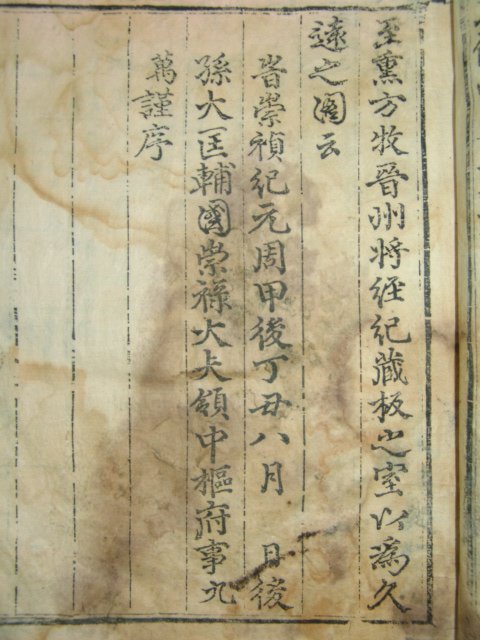 至薰方牧晉州將經紀藏板之室以爲久
遠之圖云
旹崇禎紀元周甲後丁丑八月 日後
孫大匡輔國崇祿大夫領中樞府事九
萬謹序